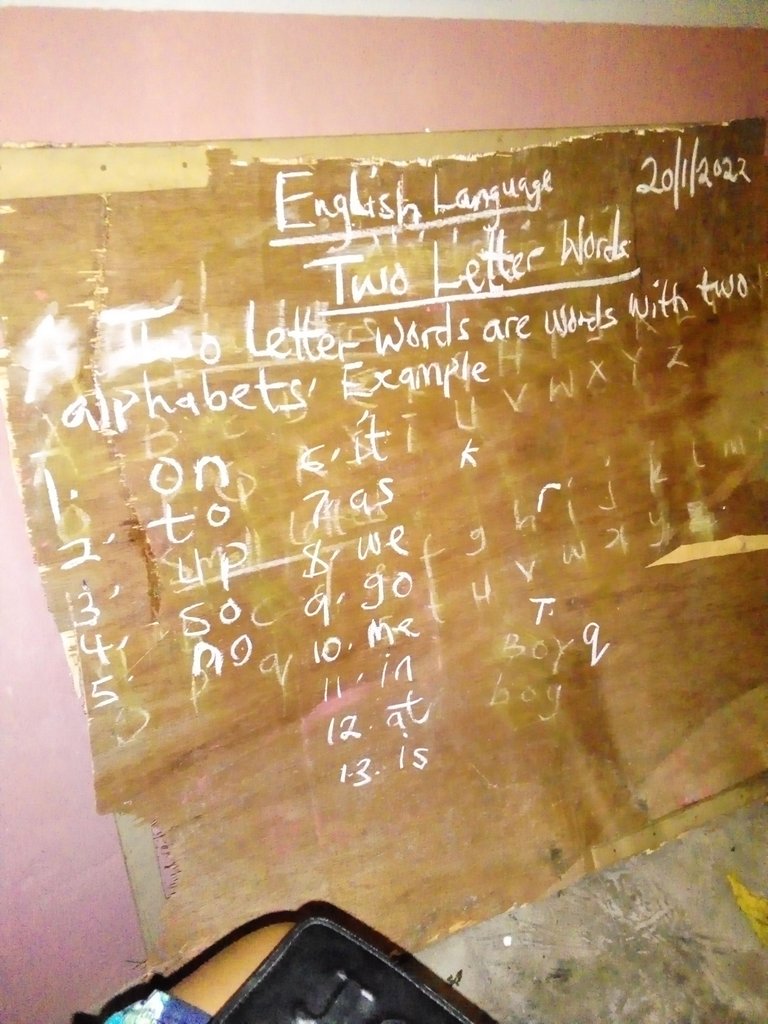 20/1/2022
English Language
Two Letter Words
A Two letter words are words with two
alphabets' Example
1. on
2. to
3. up
4. so
5. no
6. it
7. as
8. we
9. go
10. me
11. in
12. at
13. is
k
r
T.
q
U V W X Y Z
g h i j k l m
u v w x y z
Boy
boy